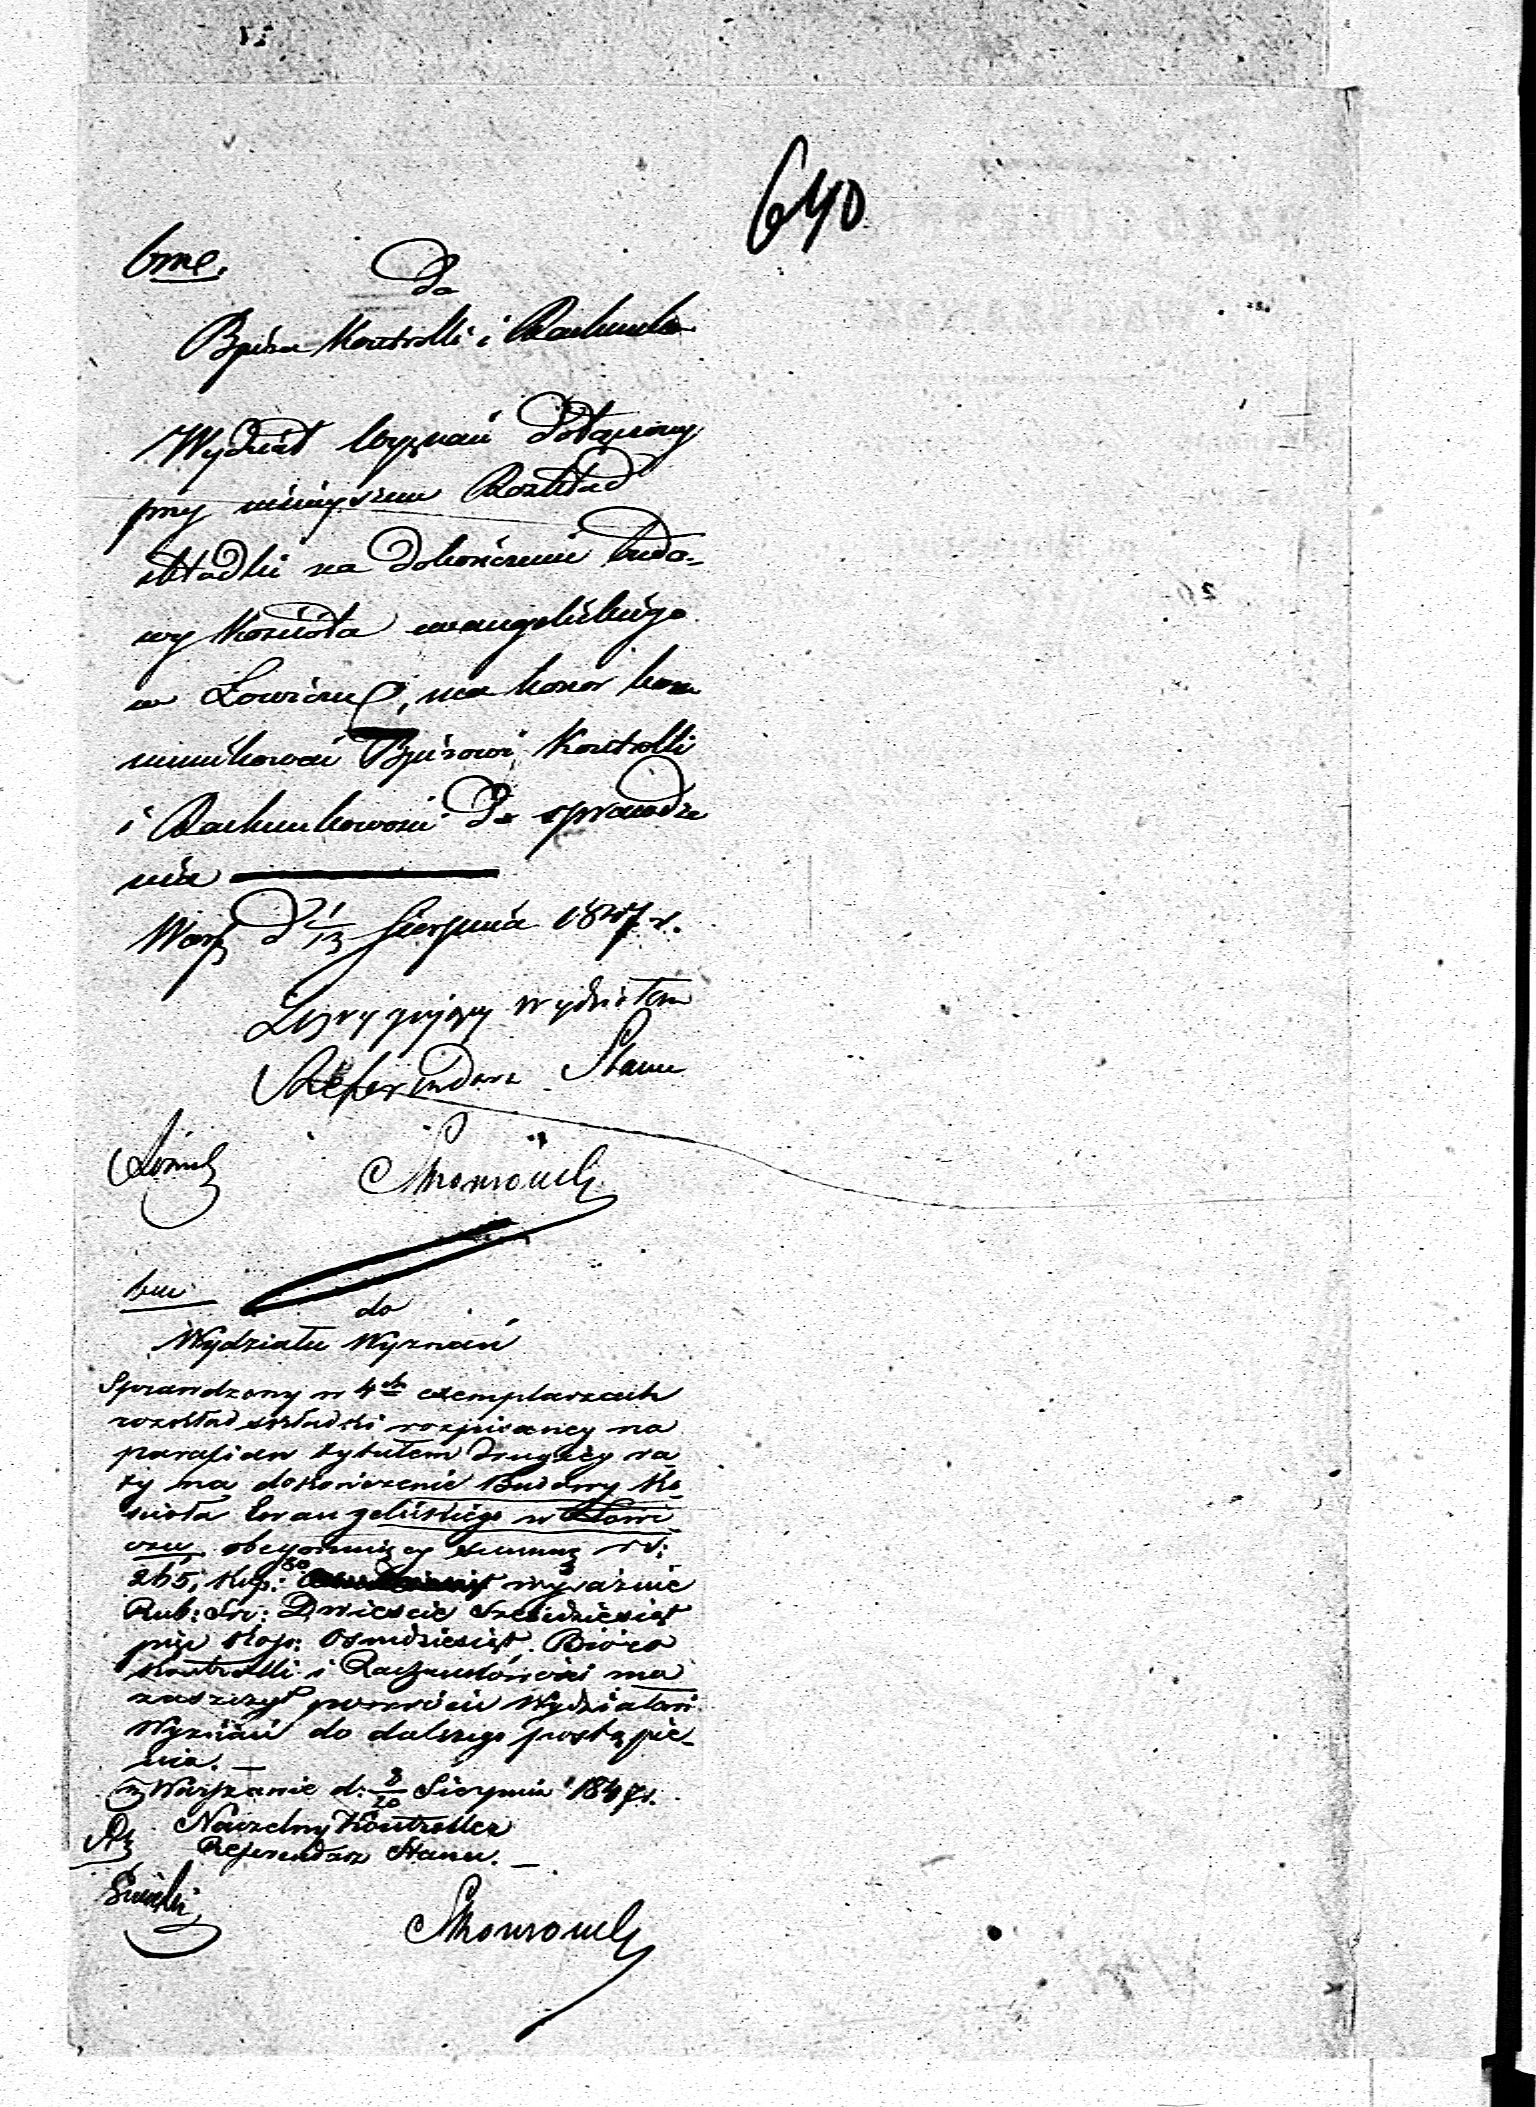 640
bme.
Do
Bjura Kontrolli i Rachunko
Wydział Wyznań dołączony
przy niniejszem Rozkład
składki na dokończenie budo-
wy Kościoła ewangelickiego
w Łowiczu, ma honor kom
munikować Bjurowi Kontrolli
i Rachunkowości do sprawdze
nia
Warsz d 1/13 Sierpnia 1847 r.
Zawiadujący Wydziałem
Referendarz Stanu
bm
do
Wydziału Wyznań
Sprawdzony w 4ch exemplarzach
rozkład składki rozpisaney na
parafian tytułem drugiéy ra
ty na dokończenie Budowy Ko-
ścioła Ewangelickiego w Łowi
czu, obejmujący summę rs:
265, kop: 80 wyraźnie
Rub: Sr: Dwieście Sześdziesiąt
pięć kop: Osmdziesiąt. Bióro
Kontrolli i Rachunkowości ma
zaszczyt zwrócić Wydziałowi
Wyznań do dalszego postąpie-
nia. —
w Warszawie d: 8/20 Sierpnia 1847 r.
Naczelny Kontroller
Referendarz Stanu. —